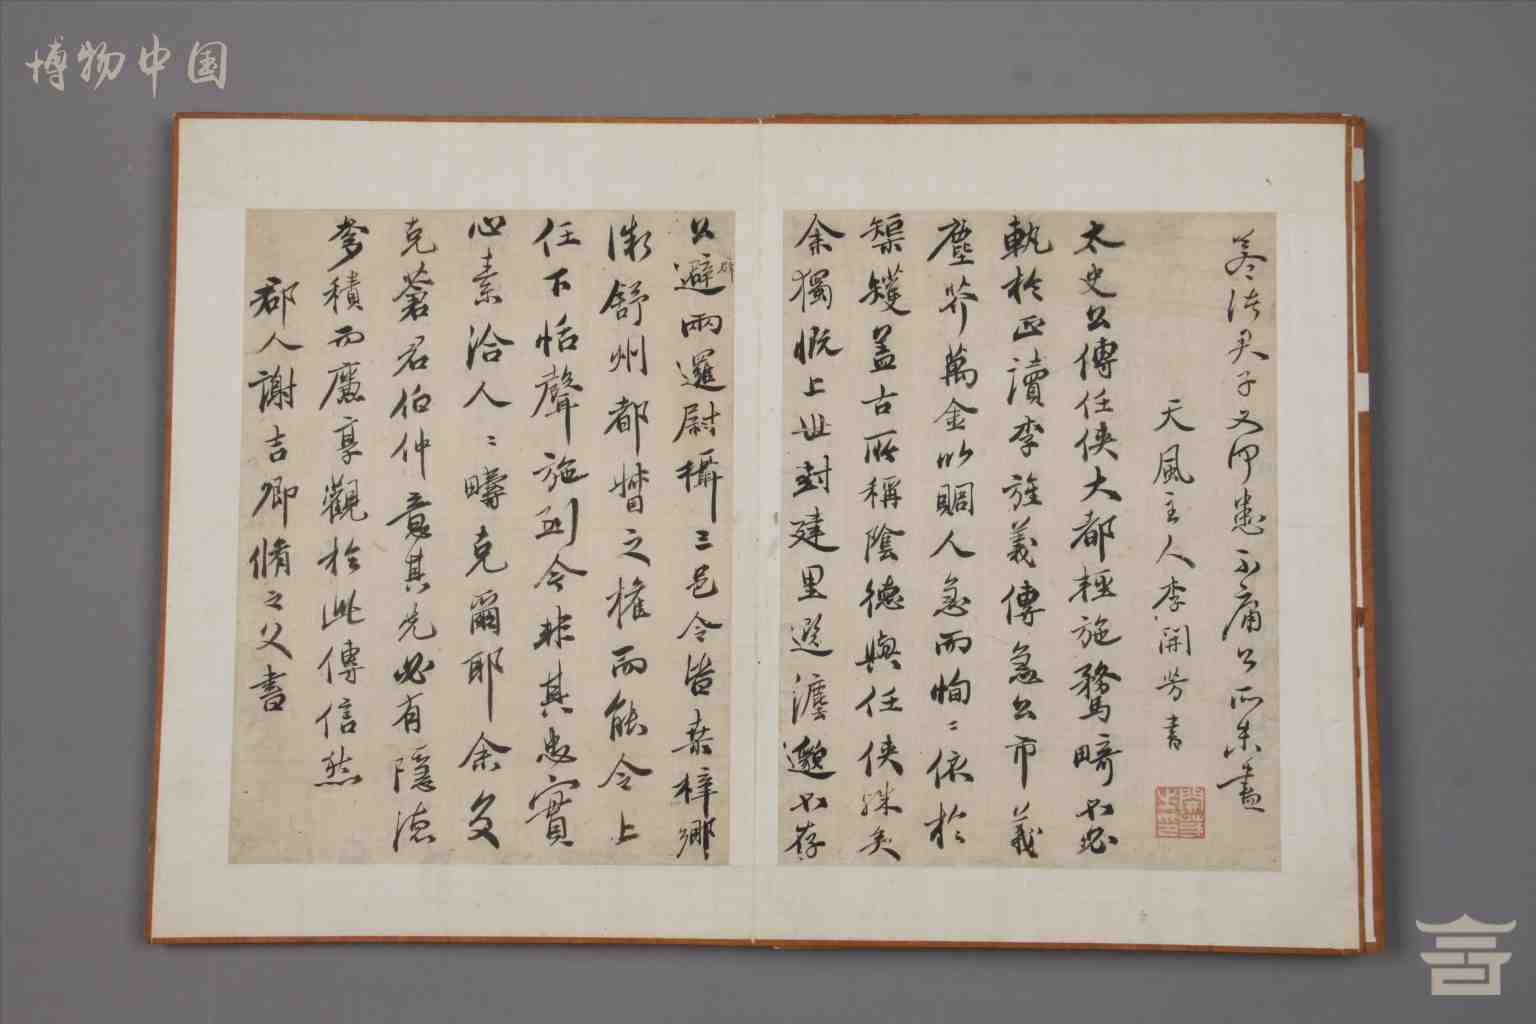 博物中国
天風主人李開芳書
太史公傳任俠大都極施騖 不必
軌於正讀李 義傳急公市義
塵芥萬金以賙人急而恂〻依於
榘矱蓋古所稱陰德與任俠殊矣
余獨慨上世封建里選 邈不存
公避兩邏尉攝三邑令皆桑梓鄉
舒州都 之權而能令上
任下恬聲施到今非其忠實
心素洽人〻疇克爾耶余交
克蒼君伯仲意其先必有隱德
積而 享觀於此傳信然
郡人謝吉卿脩之父書